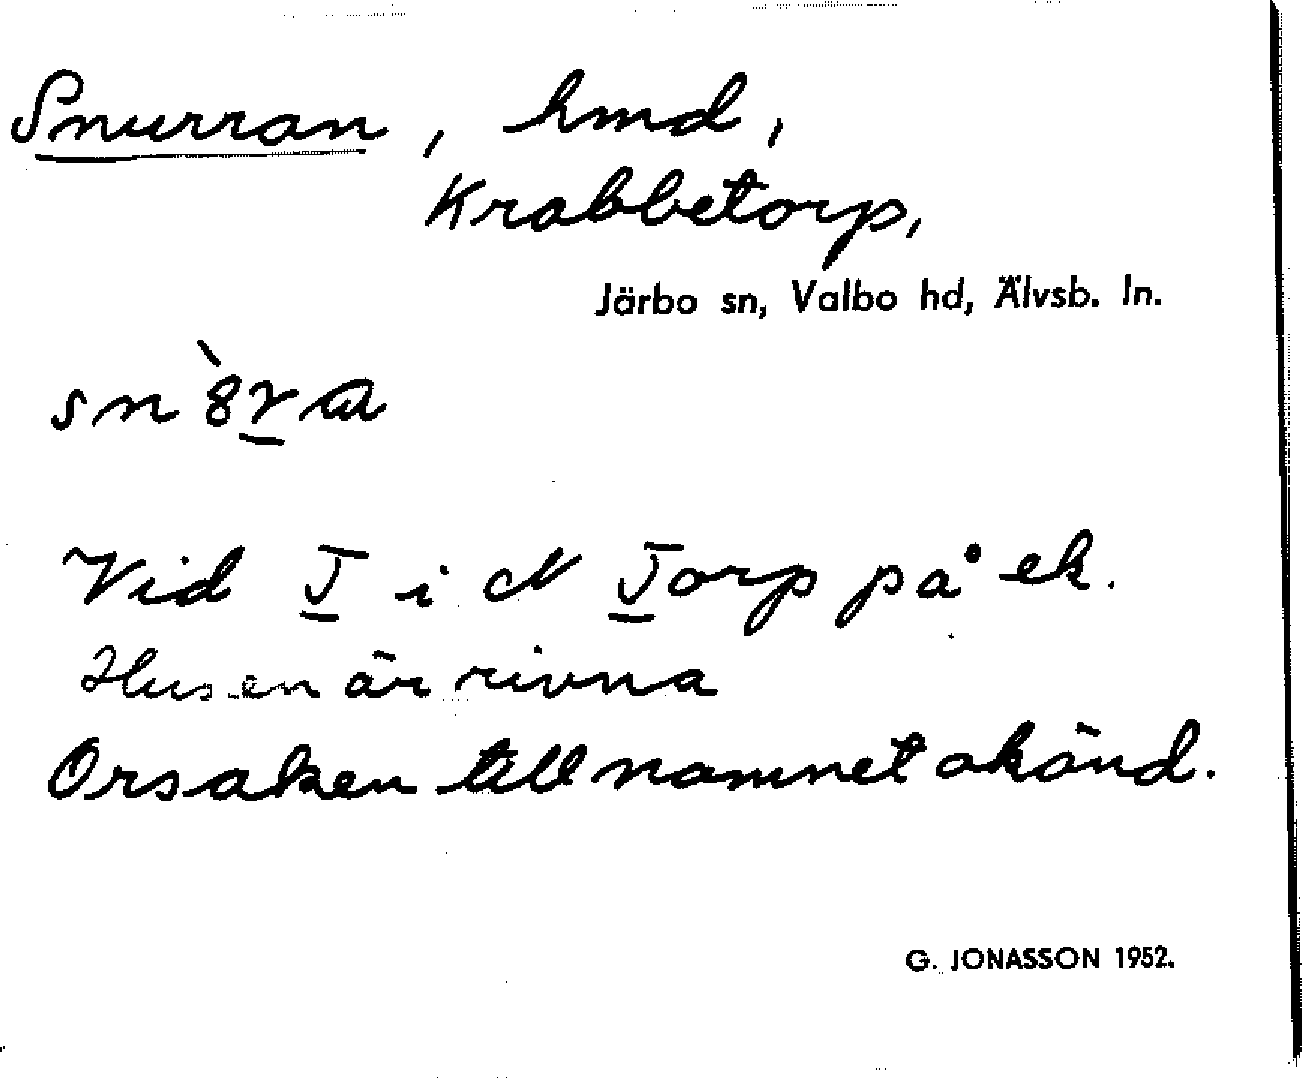 Snurran, hmd,
Krabbetorp,
Järbo sn, Valbo hd, Älvsb. ln.
sn`8r̲a
Vid T̲ i N T̲orp på ek.
Husen är rivna
Orsaken till namnet okänd.
G. JONASSON 1952.